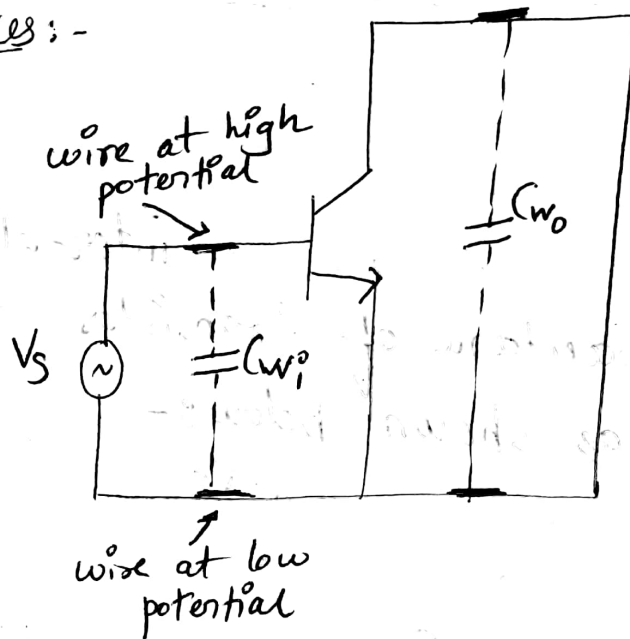 wire at high
potential
Cwₒ
Vs
~
Cwᵢ
wire at low
potential